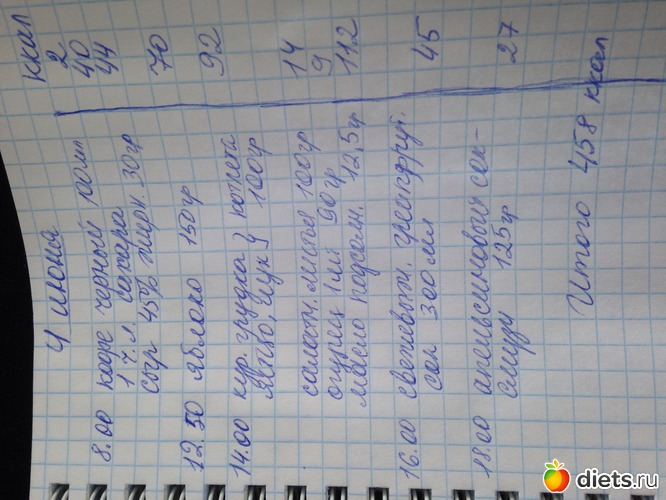 4 июня ккал
8.00 кофе черный 100мл 2
1 ч. л. сахара 40
сыр 45% жирн. 30гр 44
12.30 яблоко 150гр 70
14.00 кур. грудка } котлета 92
яйцо, лук } 100гр
салатн. листья 100гр 14
огурец 1шт 90гр 9
масло подсолн. 12,5гр 112
16.00 свежевыж. грейпфрут. 45
сок 300мл
18.00 апельсиновый сок- 27
смузи 125гр
Итого 458 ккал
diets.ru